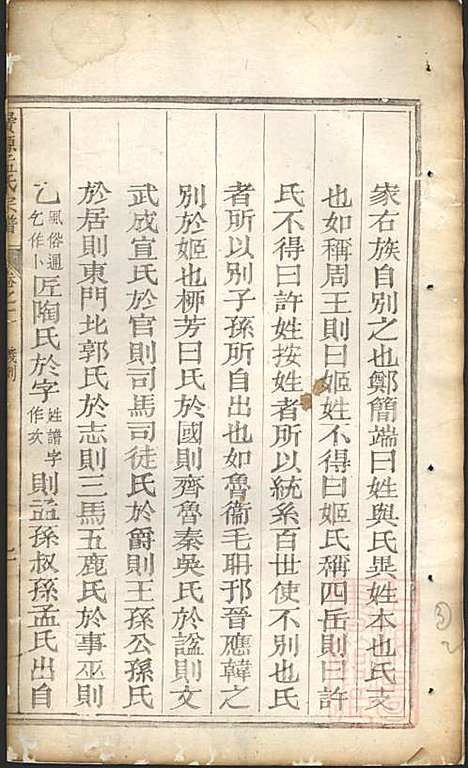 家右族自別之也鄭簡端曰姓與氏異姓本也氏支
也如稱周王則曰姬姓不得曰姬氏稱四岳則曰許
氏不得曰許姓按姓者所以統系百世使不別也氏
者所以別子孫所自出也如魯衞毛聃邘晉應韓之
別於姬也柳芳曰氏於國則齊魯秦吳氏於諡則文
武成宣氏於官則司馬司徒氏於爵則王孫公孫氏
於居則東門北郭氏於志則三馬五鹿氏於事巫則
乙風俗通乞作卜匠陶氏於字姓譜字作次則孟孫叔孫孟氏出自
氏宗譜
卷之